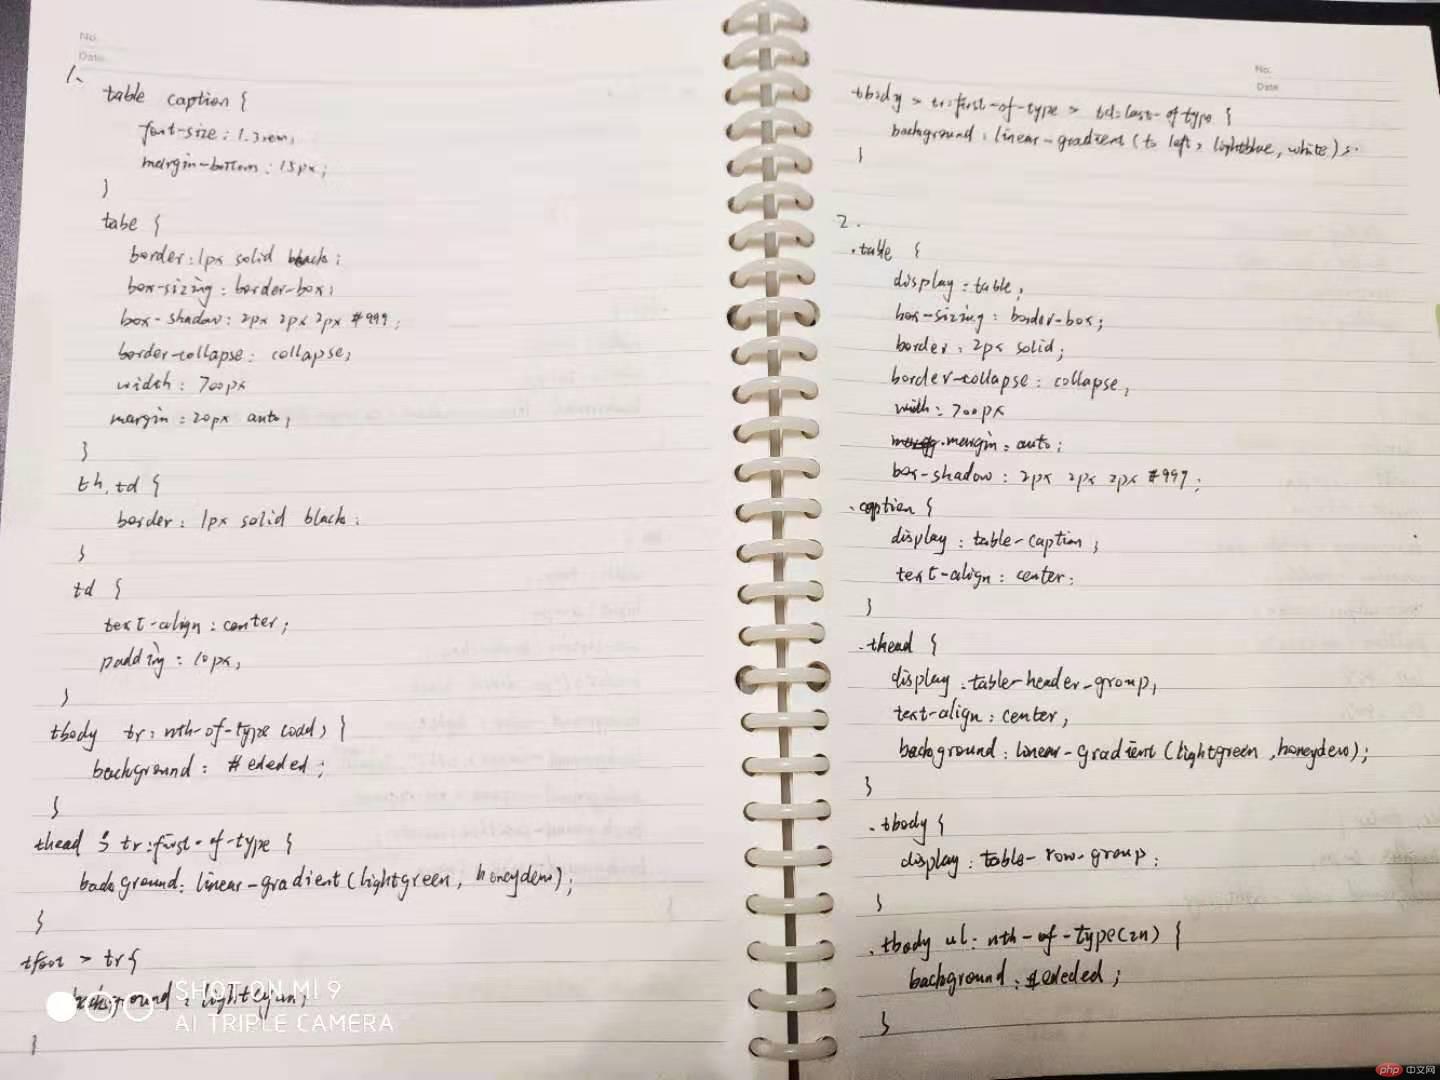 No.
Date
1、
table caption {
font-size : 1.3rem;
margin-bottom : 15px;
}
tabe {
border : 1px solid black ;
box-sizing : border-box ;
box-shadow : 2px 2px 2px #999 ;
border-collapse : collapse;
width : 700px
margin : 20px auto ;
}
th, td {
border : 1px solid black ;
}
td {
text-align : center ;
padding : 10px ;
}
tbody tr : nth-of-type (odd) {
background : #ededed ;
}
thead > tr :first-of-type {
background : linear-gradient (lightgreen , honeydew) ;
}
tfoot > tr {
background :
}
SHOT ON MI 9
AI TRIPLE CAMERA
No.
Date
tbody > tr :first-of-type > td :last-of-type {
background : linear-gradient (to left , lightblue , white) ;
}
2.
.table {
display : table ;
box-sizing : border-box ;
border : 2px solid ;
border-collapse : collapse ;
width : 700px
margin : auto ;
box-shadow : 2px 2px 2px #999 ;
.caption {
display : table-caption ;
text-align : center ;
}
.thead {
display : table-header-group ;
text-align : center ;
background : linear-gradient (lightgreen , honeydew) ;
}
.tbody {
display : table-row-group ;
}
.tbody ul : nth-of-type (2n) {
background : #ededed ;
}
php 中文网